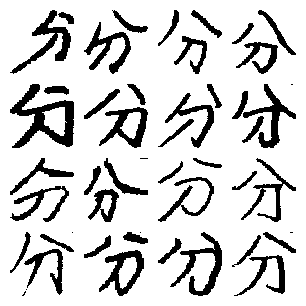 分分分分
分分分分
分分分分
分分分分